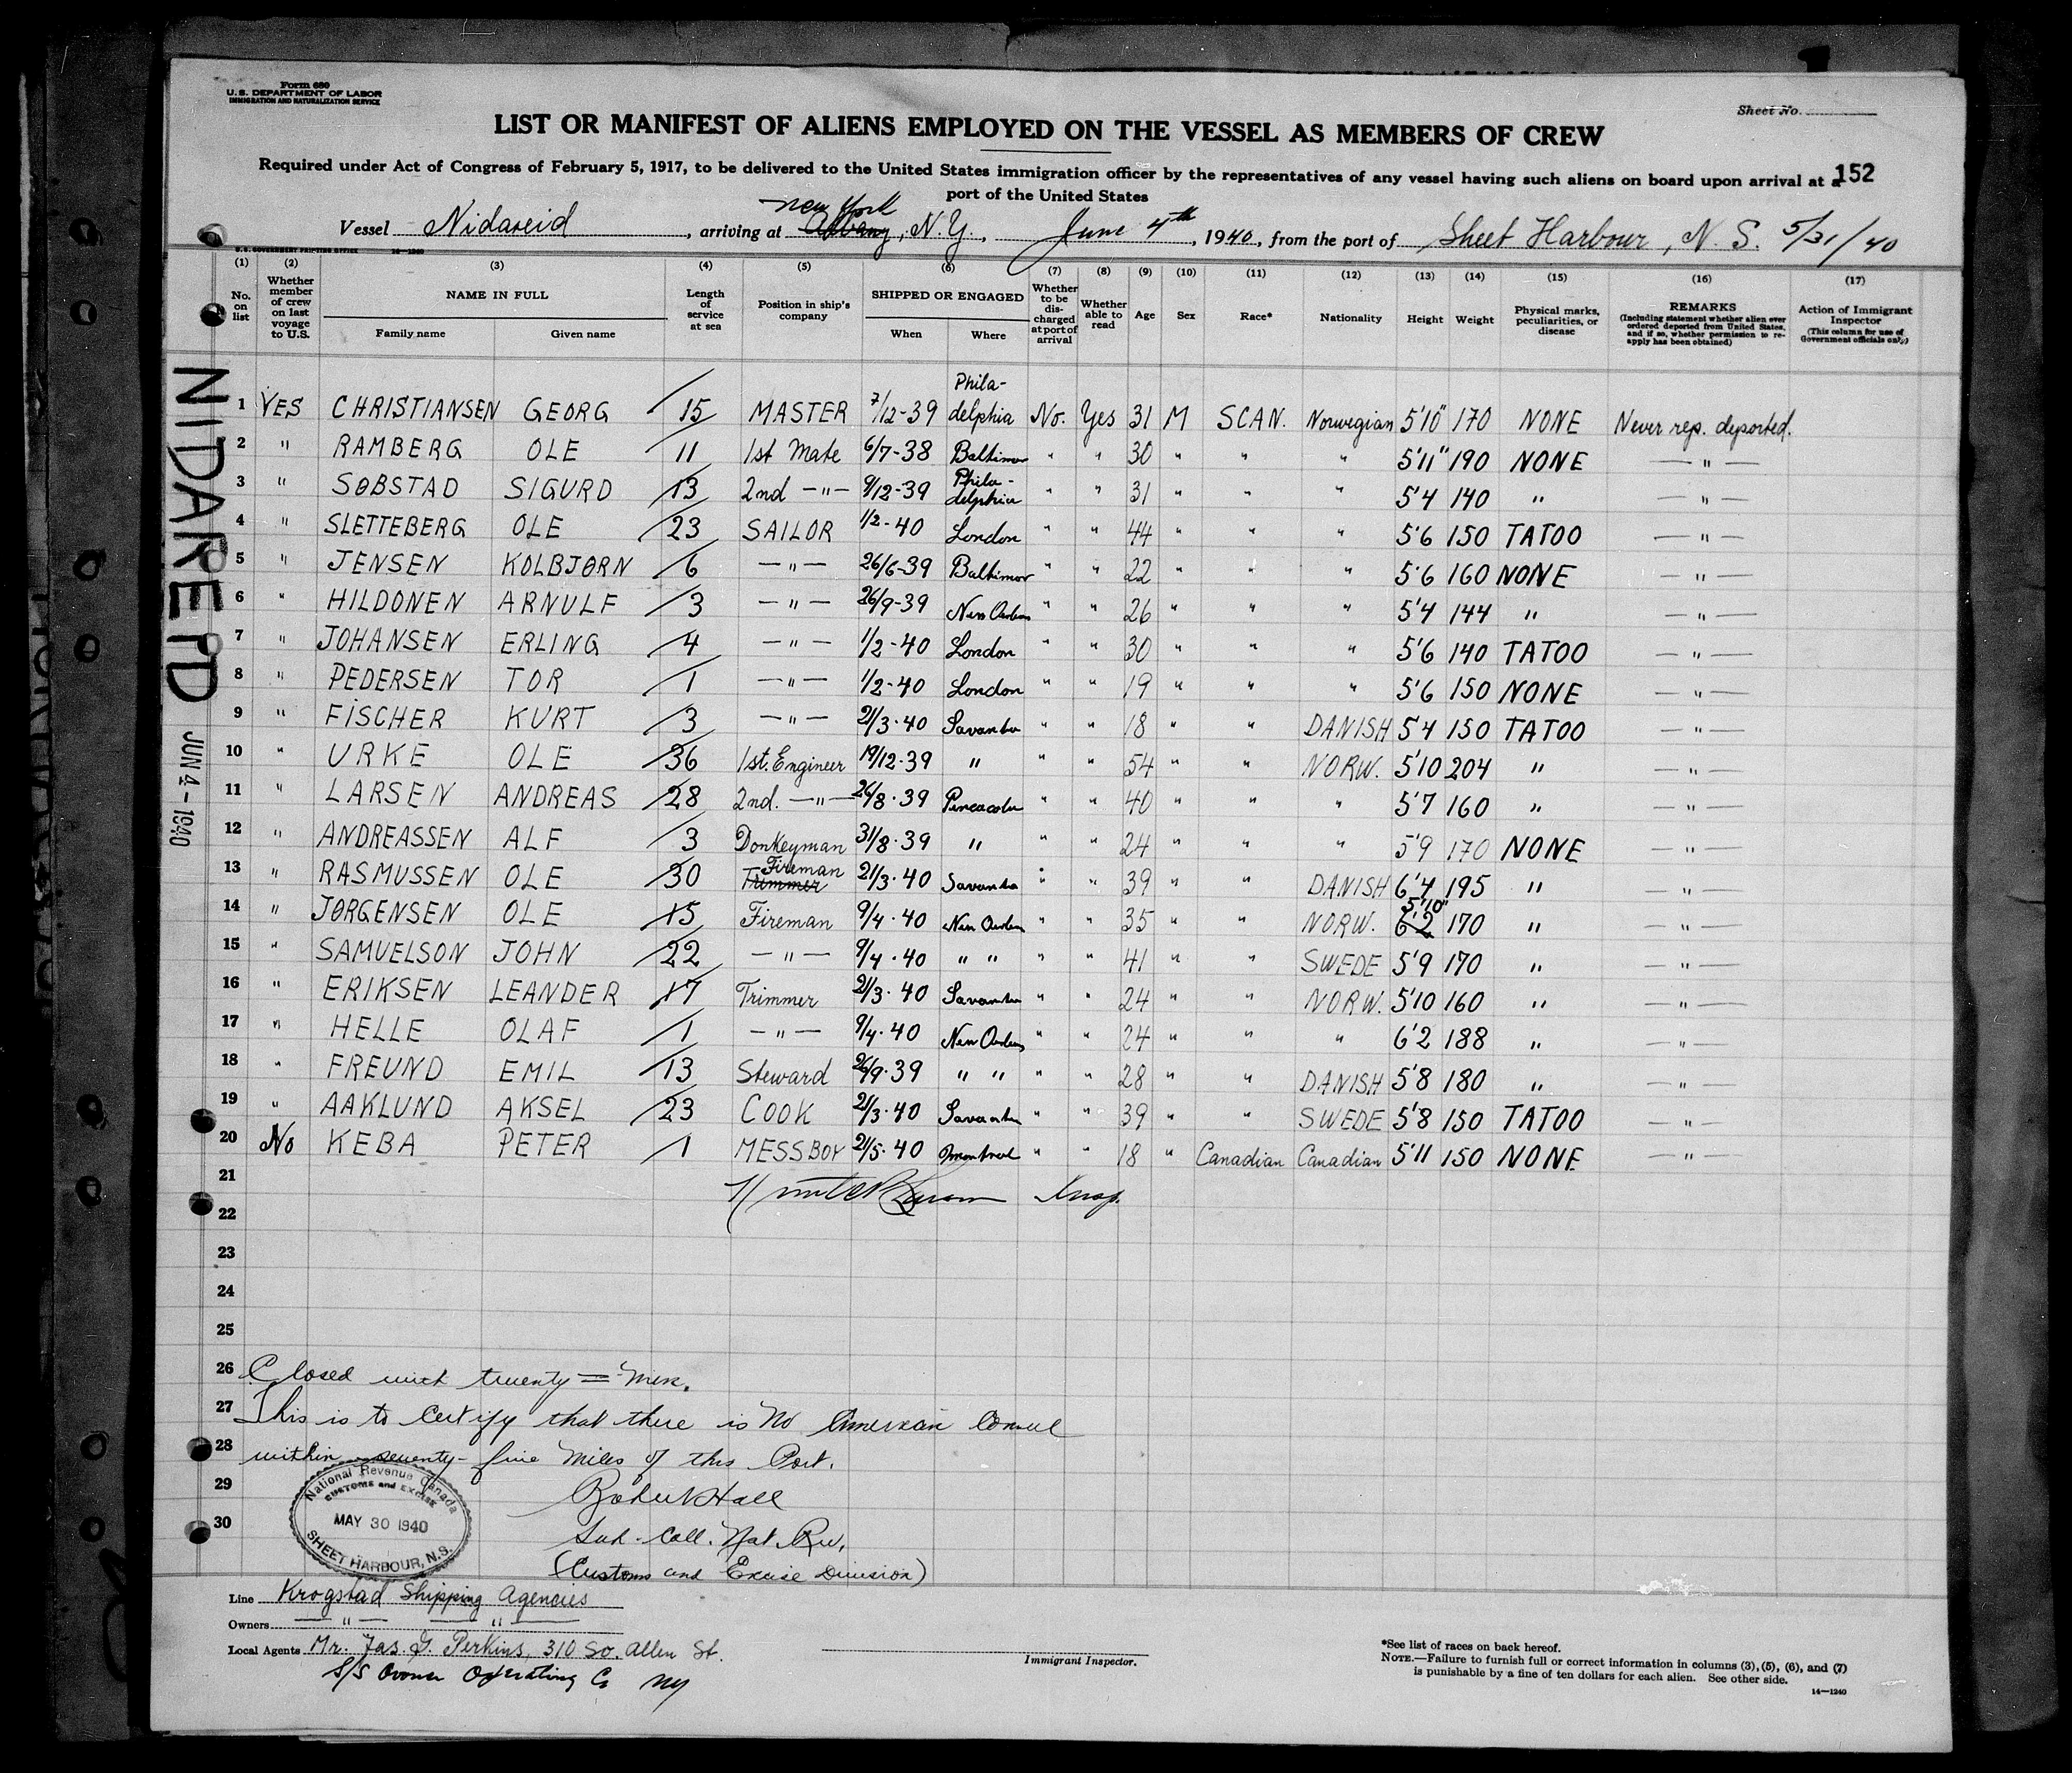 Form 680
U.S. DEPARTMENT OF LABOR
IMMIGRATION AND NATURALIZATION SERVICE
Sheet No.
LIST OR MANIFEST OF ALIENS EMPLOYED ON THE VESSEL AS MEMBERS OF CREW
Required under Act of Congress of February 5, 1917, to be delivered to the United States immigration officer by the representatives of any vessel having such aliens on board upon arrival at a
152
port of the United States
New York
Vessel Nidareid, arriving at Albany, N.Y., June 4th, 1940, from the port of Sheet Harbour, N. S. 5/31/40
U.S. GOVERNMENT PRINTING OFFICE 14-1240
(1) (2) (3) (4) (5) (6) (7) (8) (9) (10) (11) (12) (13) (14) (15) (16) (17)
No. on list
Whether member of crew on last voyage to U.S.
NAME IN FULL
Family name Given name
Length of service at sea
Position in ship's company
SHIPPED OR ENGAGED
When Where
Whether to be discharged at port of arrival
Whether able to read
Age Sex Race* Nationality Height Weight
Physical marks, peculiarities, or disease
REMARKS
(Including statement whether alien ever ordered deported from United States, and if so, whether permission to reapply has been obtained)
Action of Immigrant Inspector
(This column for use of Government officials only)
NIDAREID
JUN 4 - 1940
1 YES CHRISTIANSEN GEORG 15 MASTER 7/12-39 Phila-delphia No. Yes 31 M SCAN. Norwegian 5'10" 170 NONE Never rep. deported.
2 " RAMBERG OLE 11 1st Mate 6/7-38 Baltimor " " 30 " " " 5'11" 190 NONE — " —
3 " SØBSTAD SIGURD 13 2nd — " — 9/12-39 Phila-delphia " " 31 " " " 5'4 140 " — " —
4 " SLETTEBERG OLE 23 SAILOR 1/2-40 London " " 44 " " " 5'6 150 TATOO — " —
5 " JENSEN KOLBJØRN 6 — " — 26/6-39 Baltimor " " 22 " " " 5'6 160 NONE — " —
6 " HILDONEN ARNULF 3 — " — 26/9-39 New Orleans " " 26 " " " 5'4 144 " — " —
7 " JOHANSEN ERLING 4 — " — 1/2-40 London " " 30 " " " 5'6 140 TATOO — " —
8 " PEDERSEN TOR 1 — " — 1/2-40 London " " 19 " " " 5'6 150 NONE — " —
9 " FISCHER KURT 3 — " — 21/3-40 Savanha " " 18 " " DANISH 5'4 150 TATOO — " —
10 " URKE OLE 36 1st. Engineer 19/12-39 " " " 54 " " NORW. 5'10 204 " — " —
11 " LARSEN ANDREAS 28 2nd. — " — 26/8-39 Pencacola " " 40 " " " 5'7 160 " — " —
12 " ANDREASSEN ALF 3 Donkeyman 31/8-39 " " " 24 " " " 5'9 170 NONE — " —
13 " RASMUSSEN OLE 30 Trimmer Fireman 21/3-40 Savanha " " 39 " " DANISH 6'4 195 " — " —
14 " JØRGENSEN OLE 15 Fireman 9/4-40 New Orleans " " 35 " " NORW. 6'2 5'10" 170 " — " —
15 " SAMUELSON JOHN 22 — " — 9/4-40 " " " " 41 " " SWEDE 5'9 170 " — " —
16 " ERIKSEN LEANDER 17 Trimmer 21/3-40 Savanha " " 24 " " NORW. 5'10 160 " — " —
17 " HELLE OLAF 1 — " — 9/4-40 New Orleans " " 24 " " " 6'2 188 " — " —
18 " FREUND EMIL 13 Steward 26/9-39 " " " " 28 " " DANISH 5'8 180 " — " —
19 " AAKLUND AKSEL 23 COOK 21/3-40 Savanha " " 39 " SWEDE 5'8 150 TATOO — " —
20 No KEBA PETER 1 MESSBOY 21/5-40 Montreal " " 18 " Canadian Canadian 5'11 150 NONE — " —
21
Insp.
22
23
24
25
26 Closed with twenty = Men.
27 This is to Certify that there is No American Consul
28 within seventy-five Miles of this Port.
29 Robert Hall
30 Sub-Coll. Nat. Rev.
(Customs and Excise Division)
National Revenue Canada
CUSTOMS and EXCISE
MAY 30 1940
SHEET HARBOUR, N.S.
Line Krogstad Shipping Agencies
Owners — " — — " —
Local Agents Mr. Jas. G. Perkins, 310 So. Allen St.
S/S Owner Operating Co NY
Immigrant Inspector.
*See list of races on back hereof.
NOTE.—Failure to furnish full or correct information in columns (3), (5), (6), and (7)
is punishable by a fine of ten dollars for each alien. See other side.
14—1240